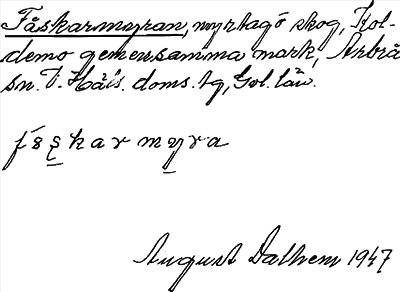 Fåskarmyran, myrtagö skog, Kol-
demo gemensamma mark, Arbrå
sn. V. Häls. doms. tg, Gol. län.
f s̄ s̱ k a r m y̱ r a
August Dalhem 1947